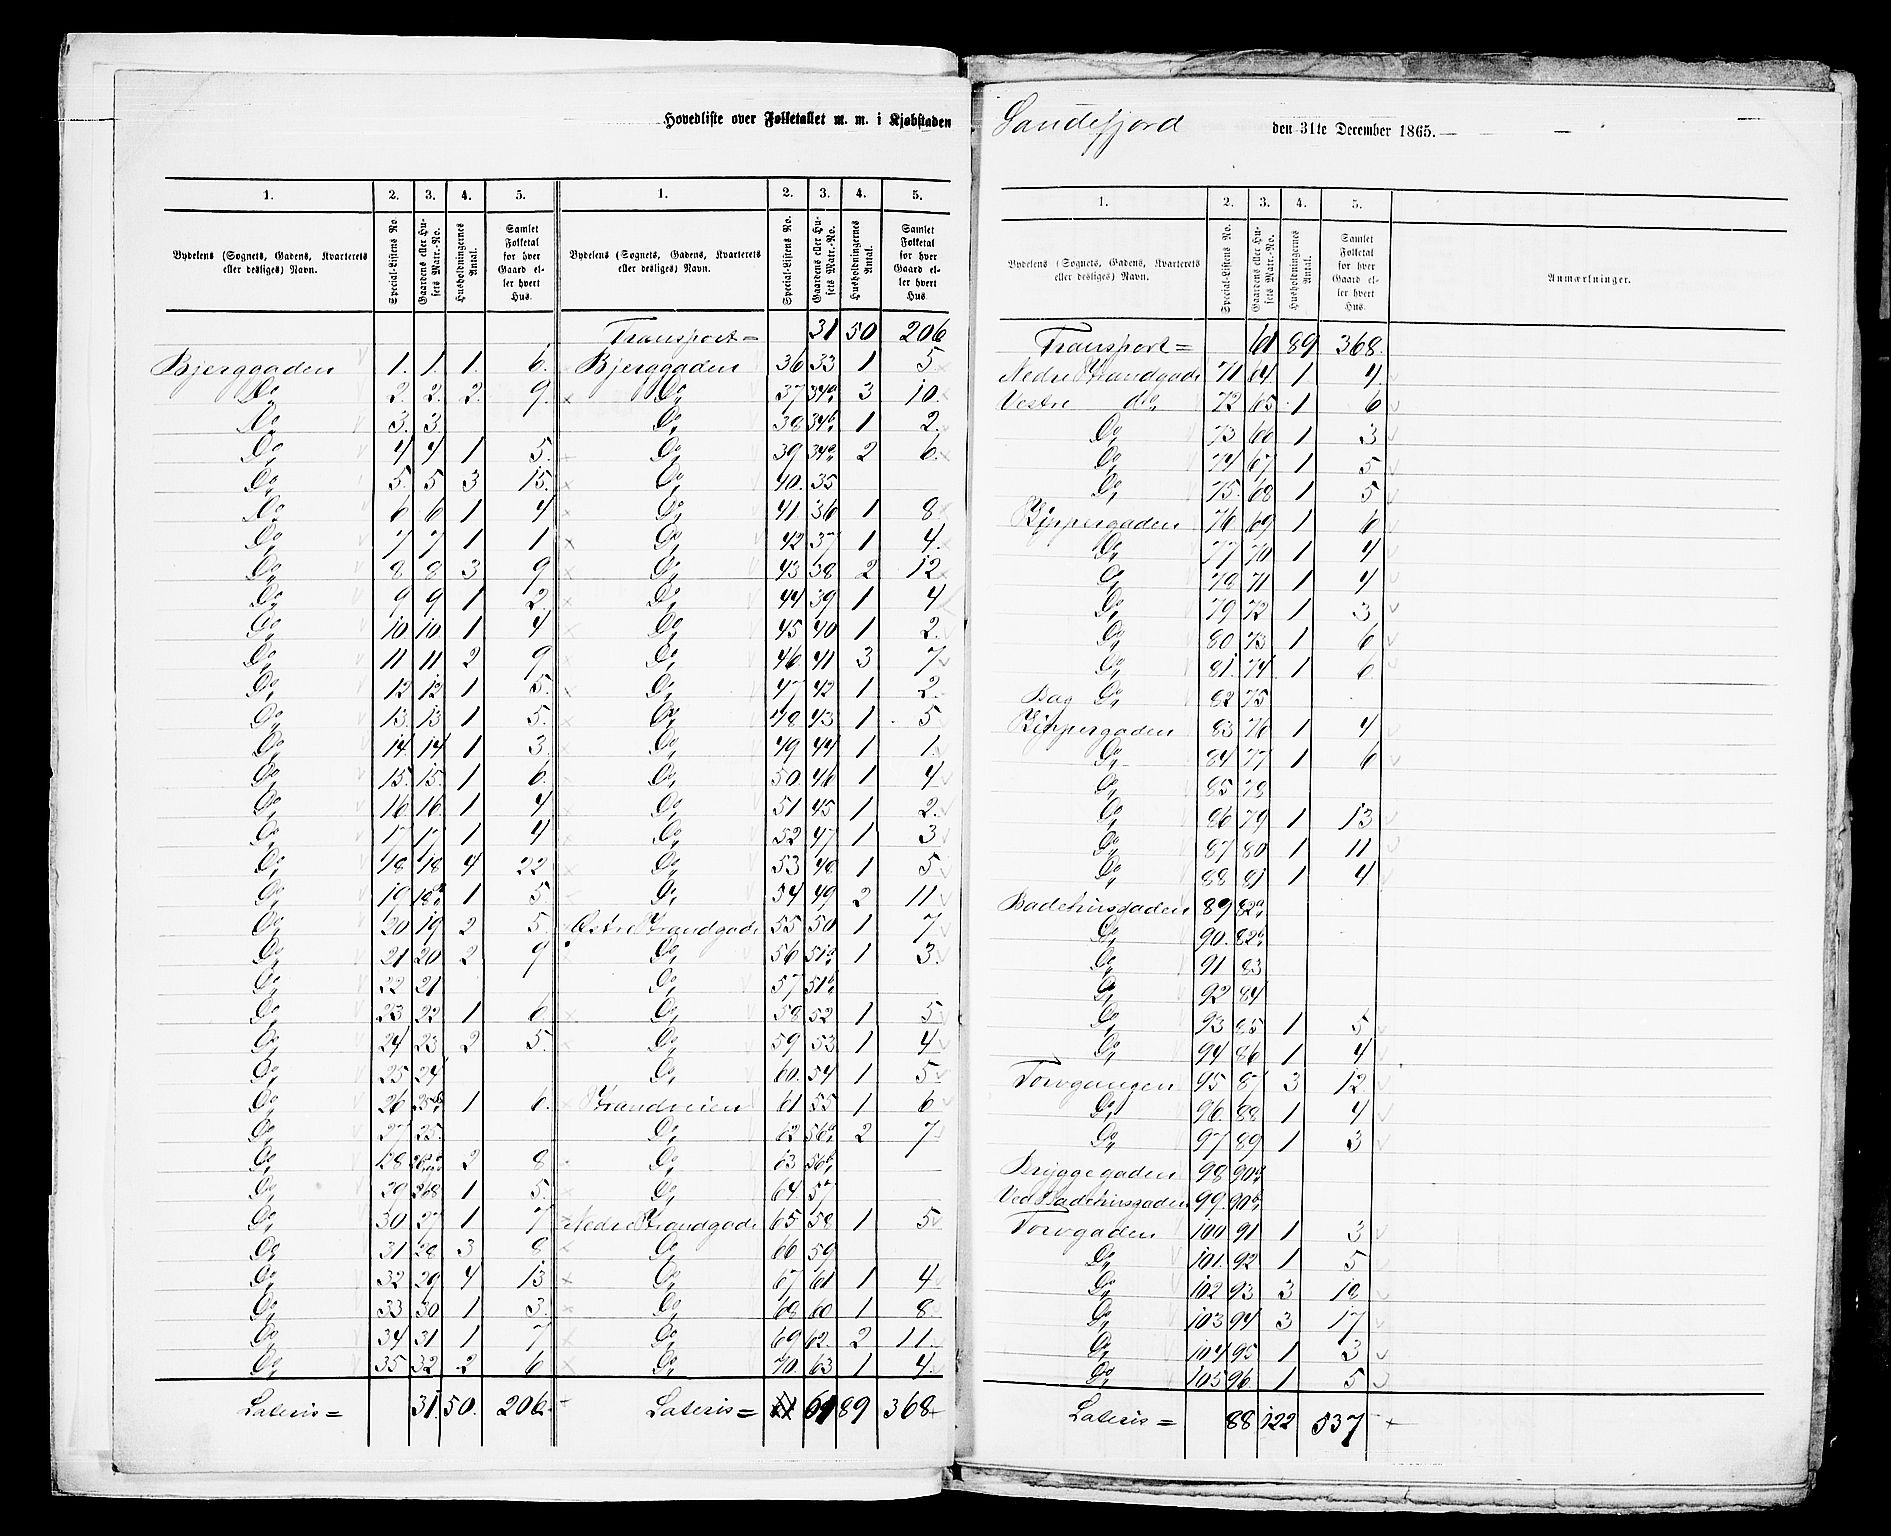 Hovedliste over Folketallet m. m. i Kjøbstaden Sandefjord den 31te December 1865.
1. 2. 3. 4. 5. 1. 2. 3. 4. 5.
Bydelens (Sognets, Gadens, Kvarterets eller desliges) Navn. Special-Listens No. Gaardens eller Husets Matr.-No. Husholdningernes Antal. Samlet Folketal for hver Gaard eller hvert Hus. Bydelens (Sognets, Gadens, Kvarterets eller desliges) Navn. Special-Listens No. Gaardens eller Husets Matr.-No. Husholdningernes Antal. Samlet Folketal for hver Gaard eller hvert Hus.
Transport= 31 50 206
Bjerggaden 1. 1. 1. 6. Bjerggaden 36 33 1 5
Do 2. 2. 2. 9. Do 37 34a 3 10.
Do 3. 3. Do 38 34b 1 2.
Do 4 4 1 5. Do 39 34c 2 6.
Do 5 5 3 15. Do 40. 35
Do 6 6 1 4 Do 41 36 1 8
Do 7 7 1 1 Do 42 37 1 4.
Do 8 8 3 9 Do 43 38 2 12
Do 9 9 1 2. Do 44 39 1 4
Do 10 10. 1 4 Do 45 40 1 2.
Do 11 11 2 9 Do 46. 41 3 7
Do 12 12 1 5. Do 47 42 1 2.
Do 13. 13 1 5. Do 48 43 1 5
Do 14. 14 1 3. Do 49 44 1 1.
Do 15. 15. 1 6. Do 50. 46 1 4
Do 16. 16. 1 4 Do 51 45 1 2.
Do 17. 17. 1 4 Do 52 47 1 3
Do 18 18 4 22 Do 53 48 1 5
Do 19 18b 1 5 Do 54 49 2 11
Do 20 19 2 5. Østre Strandgade 55 50 1 7
Do 21 20 2 9 Do 56 51a 1 3.
Do 22 21 Do 57 51b
Do 23 22 1 6 Do 58 52 1 5
Do 24 23 2 5. Do 59 53 1 4
Do 25 24 Do 60. 54 1 5
Do 26 25b 1 6. Strandveien 61 55 1 6
Do 27 25. Do 62 56a 2 7
Do 28 2 8 Do 63 56b
Do 29 26b 1 5. Do 64 57
Do 30 27 1 7 Nedre Strandgade 65 58 1 5
Do 31 28 3 8 Do 66 59
Do 32 29 4 13 Do 67 61 1 4
Do 33 30 1 3. Do 68 60 1 8
Do 34 31 1 7 Do 69 62. 2 11.
Do 35 32 2 6 Do 70 63 1 4.
Lateris= 31. 50. 206. Lateris= 61 89 368
1. 2. 3. 4. 5.
Bydelens (Sognets, Gadens, Kvarterets eller desliges) Navn. Special-Listens No. Gaardens eller Husets Matr.-No. Husholdningernes Antal. Samlet Folketal for hver Gaard eller hvert Hus. Anmærkninger.
Transport= 61 89 368.
Nedre Strandgade 71 64 1 4.
Vestre do 72 65 1 6
Do 73 66 1 3
Do 74 67 1 5
Do 75. 68 1 5
76 69 1 6
Do 77 70 1 4
Do 78 71 1 4
Do 79 72 1 3
Do 80 73 1 6
Do 81. 74 1 6
Bag Do 82 75
83 76 1 4
Do 84 77 1 6
Do 85 78
Do 86 79 1 13
Do 87 80 1 11
Do 88 81 1 4
Badehusgaden 89 82a
Do 90. 82b
Do 91 83
Do 92 84
Do 93 85 1 5
Do 94 86 1 4
Torvgangen 95 87 3 12
Do 96. 88 1 4
Do 97 89 1 3
Bryggegaden 98 90a
Ved Badehusgaden 99. 90b
Torvgaden 100 91 1 3
Do 101. 92 1 5
Do 102 93 3 18
Do 103 94 3 17
Do 104 95 1 3
Do 105 96. 1 5
Lateris= 88 122 537